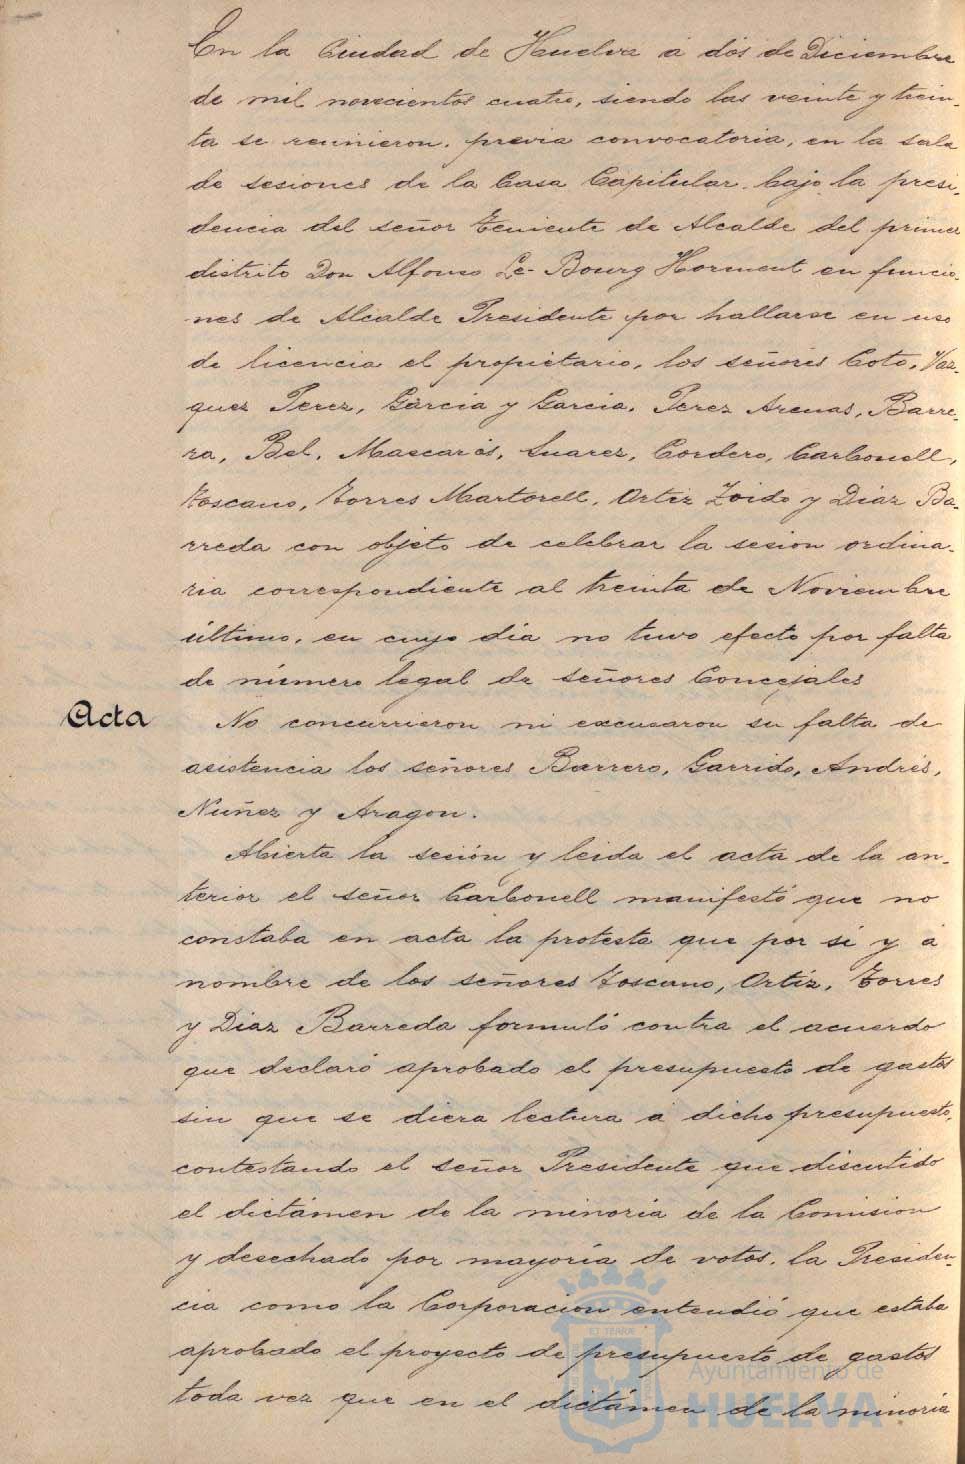 En la Ciudad de Huelva á dós de Diciembre
de mil novecientos cuatro, siendo las veinte y trein-
ta se reunieron, previa convocatoria, en la sala
de sesiones de la Casa Capitular, bajo la presi-
dencia del señor Teniente de Alcalde del primer
distrito Don Alfonso Le-Bourg Horment en funcio-
nes de Alcalde Presidente por hallarse en uso
de licencia el propietario, los señores Coto, Vaz-
quez Perez, Garcia y Garcia, Perez Arenas, Barre-
ra, Bel, Mascarós, Suarez, Cordero, Carbonell,
Toscano, Torres Martorell, Ortiz Zoido y Diaz Ba-
rreda con objeto de celebrar la sesion ordina-
ria correspondiente al treinta de Noviembre
último, en cuyo día no tuvo efecto por falta
de número legal de señores Concejales
Acta
No concurrieron ni excusaron su falta de
asistencia los señores Barrero, Garrido, Andrés,
Nuñez y Aragon.
Abierta la sesión y leida el acta de la an-
terior el señor Carbonell manifestó que no
constaba en acta la protesta que por sí y á
nombre de los señores Toscano, Ortíz, Torres
y Diaz Barreda formuló contra el acuerdo
que declaró aprobado el presupuesto de gastos
sin que se diera lectura á dicho presupuesto,
contestando el señor Presidente que discutido
el dictámen de la minoria de la Comision
y desechado por mayoría de votos, la Presiden-
cia como la Corporacion entendió que estaba
aprobado el proyecto de presupuesto de gastos
toda vez que en el dictámen de la minoria
ET TERRÆ
Ayuntamiento de
HUELVA